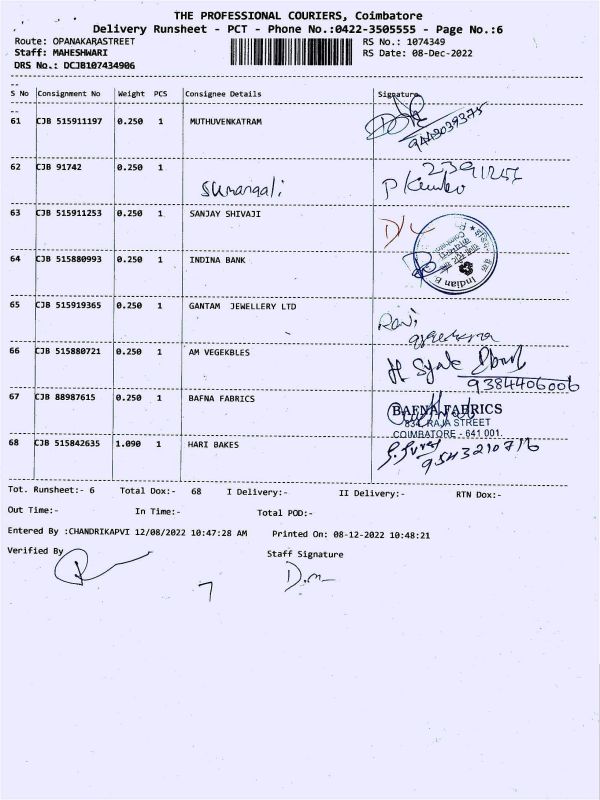 THE PROFESSIONAL COURIERS, Coimbatore
Delivery Runsheet - PCT - Phone No.:0422-3505555 - Page No.:6
Route: OPANAKARASTREET RS No.: 1074349
Staff: MAHESHWARI RS Date: 08-Dec-2022
DRS No.: DCJB107434906
S No Consignment No Weight PCS Consignee Details Signature
61 CJB 515911197 0.250 1 MUTHUVENKATRAM
9443039375
62 CJB 91742 0.250 1 Sumangali
2391256
63 CJB 515911253 0.250 1 SANJAY SHIVAJI D/L
64 CJB 515880993 0.250 1 INDINA BANK
Indian B
65 CJB 515919365 0.250 1 GANTAM JEWELLERY LTD
Ravi
66 CJB 515880721 0.250 1 AM VEGEKBLES
9384406006
67 CJB 88987615 0.250 1 BAFNA FABRICS
BAFNA FABRICS
834, RAJA STREET
COIMBATORE - 641 001.
68 CJB 515842635 1.090 1 HARI BAKES
9543210716
Tot. Runsheet:- 6 Total Dox:- 68 I Delivery:- II Delivery:- RTN Dox:-
Out Time:- In Time:- Total POD:-
Entered By :CHANDRIKAPVI 12/08/2022 10:47:28 AM Printed On: 08-12-2022 10:48:21
Verified By Staff Signature
7